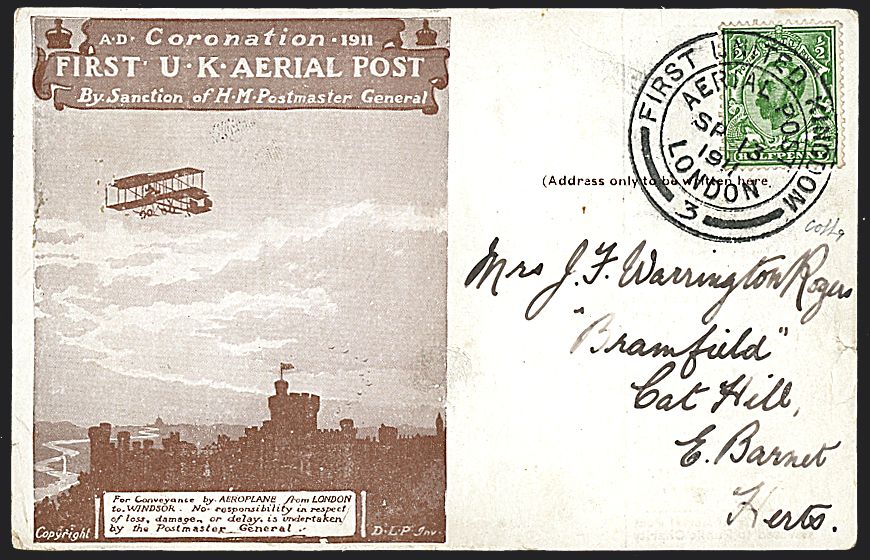 A·D· Coronation ·1911
FIRST U·K·AERIAL POST
By Sanction of H·M·Postmaster General
For Conveyance by AEROPLANE from LONDON
to WINDSOR. No responsibility in respect
of loss, damage, or delay, is undertaken
by the Postmaster General.
Copyright
D·L·P Inv
FIRST UNITED KINGDOM
AERIAL POST
SP 13
1911
LONDON
3
½
HALFPENNY
(Address only to be written here.
Mrs J. F. Warrington Rogers
"Bramfield"
Cat Hill,
E. Barnet
Herts.